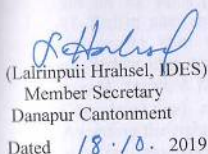 (Lalrinpuii Hrahsel, IDES)
Member Secretary
Danapur Cantonment
Dated 18.10. 2019